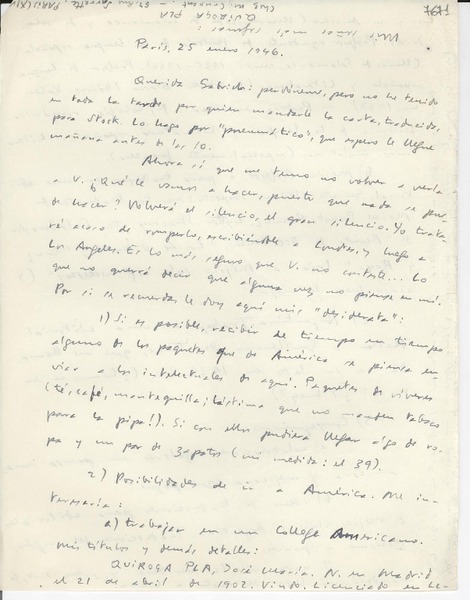 7671
Mis señas más seguras:
QUIROGA PLA
Chez M.
París, 25 enero 1946.
Querida Gabriela: perdóneme, pero no he tenido
en toda la tarde por quien mandarle la carta, traducida,
para Stock. Lo hago por "pneumático", que espero le llegue
mañana antes de las 10.
Ahora sí que me temo no volver a verla
a V. ¡Qué le vamos a hacer, puesto que nada se pue-
de hacer? Volverá el silencio, el gran silencio. Yo trata-
ré acaso de romperlo, escribiéndole a Londres, y luego a
Los Angeles. Es lo más seguro que V. no conteste... Lo
que no querrá decir que alguna vez no piense en mí.
Por si se recuerda, le doy aquí mis "desiderata":
1) Si es posible, recibir de tiempo en tiempo
alguno de los paquetes que de América se piensa en-
viar a los intelectuales de aquí. Paquetes de víveres
(té, café, mantequilla; ¡lástima que no manden tabaco
para la pipa!). Si con ellos pudiera llegar algo de ro-
pa y un par de zapatos (mi medida: el 39).
2) Posibilidades de ir a América. Me in-
teresaría:
a) trabajar en un College Americano.
Mis títulos y demás detalles:
QUIROGA PLA, José María. N. en Madrid
el 21 de abril de 1902. Viudo. Licenciado en Le-